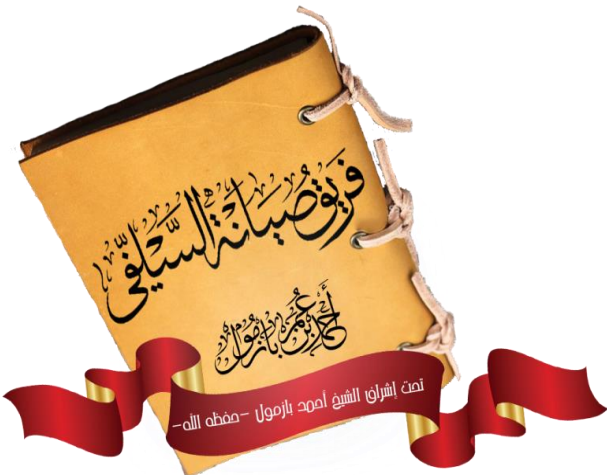 فريق صيانة السلفي
أحمد بن عمر بازمول
تحت إشراف الشيخ أحمد بازمول -حفظه الله-